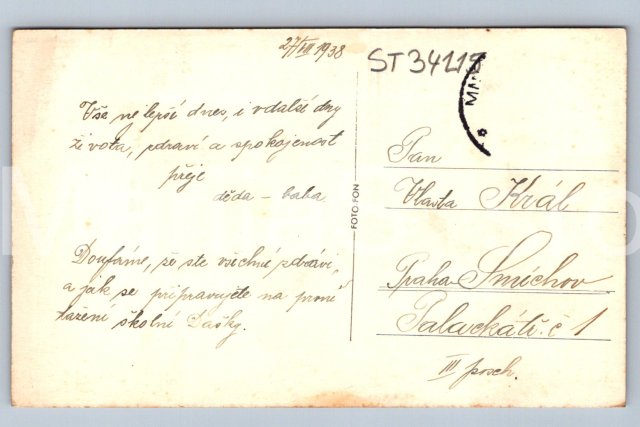 27/VII 1938
ST 34218
Vše nejlepší dnes, i v další dny
života, zdraví a spokojenost
přeje
děda – baba.
Doufáme, že ste všichni zdrávi,
a jak se připravujete na první
tažení školní Lásky.
FOTO-FON
Pan
Vlasta Král
Praha Smíchov
Palackáti. č 1
III posch.